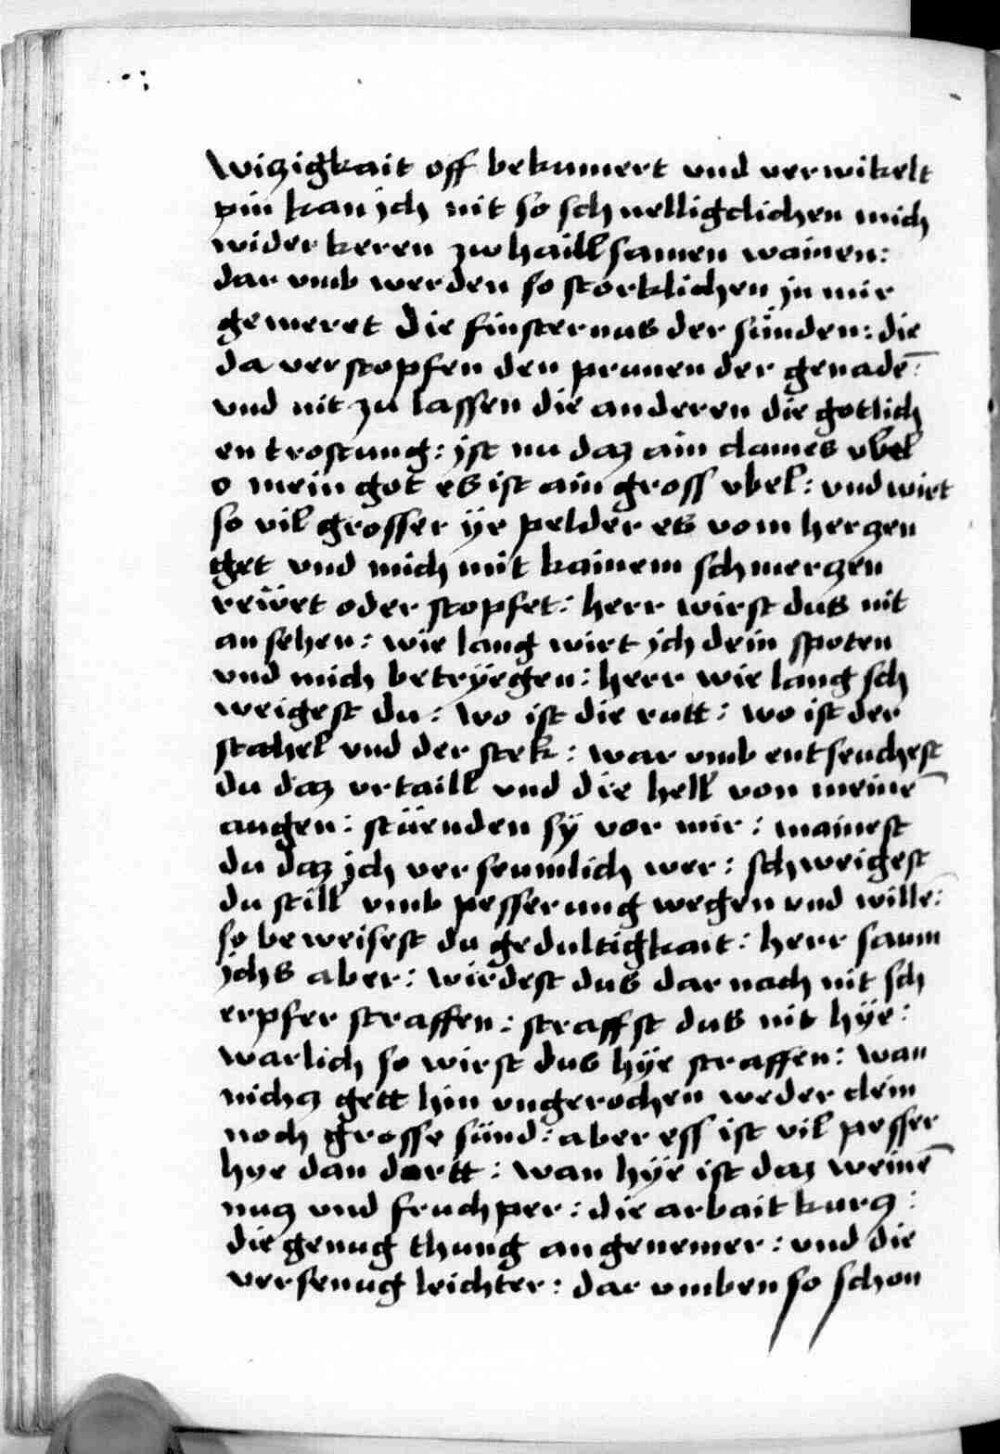 wiczigkait off bekumert und verwikelt
pin kan jch nit so schnelligclichen mich
wider keren zw haillsamen wainen:
dar umb werden so storklichen jn mir
gemeret die finsternus der sünden: die
da verstopfen den prunen der genadē:
und nit zu lassen die anderen die gotlich
en trostung: jst nu daz ain claines ubel
o mein got es ist ain gross ubel: und wirt
so vil grosser ÿe pelder es vom herczen
get und mich mit kainem schmerczen
reüet oder stopfet: herr wirst dus nit
an sehen: wie lang wirt jch dein spoten
und mich betrÿegen: herr wie lang sch
weigest du: wo ist die rutt: wo ist der
stahel und der stek: war umb entseuchest
du daz urtaill und die hell von meinē
augen: stüenden sÿ vor mir: mainest
du daz jch verseumlich wer: schweigest
du still umb pesserung wegen und willē:
so beweisest du gedultigkait: herr saum
jchs aber: wirdest dus dar nach nit sch
erpfer straffen: straffst dus nit hÿe:
warlich so wirst dus hÿe straffen: wan
nichcz gett hin ungerochen weder clein
noch grosse sünd: aber ess ist vil pesser
hye dan dortt: wan hÿe ist daz weinē
nucz und fruchper: die arbait kurcz:
die genug thung angenemer: und die
versenug leichter: dar umben so schon